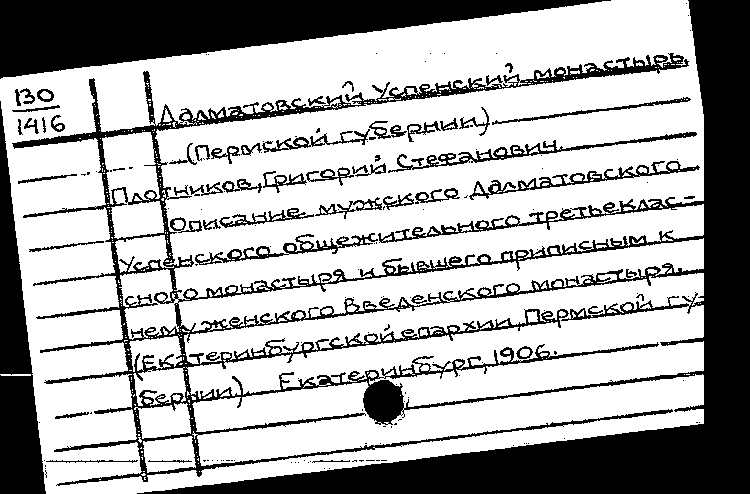 130
1416
Далматовский Успенский монастырь
(Пермской губернии).
Плотников, Григорий Стефанович.
Описание мужского Далматовского
Успенского общежительного третьеклас-
сного монастыря и бывшего приписным к
нему женского Введенского монастыря.
(Екатеринбургской епархии, Пермской гу-
бернии). Екатеринбург, 1906.